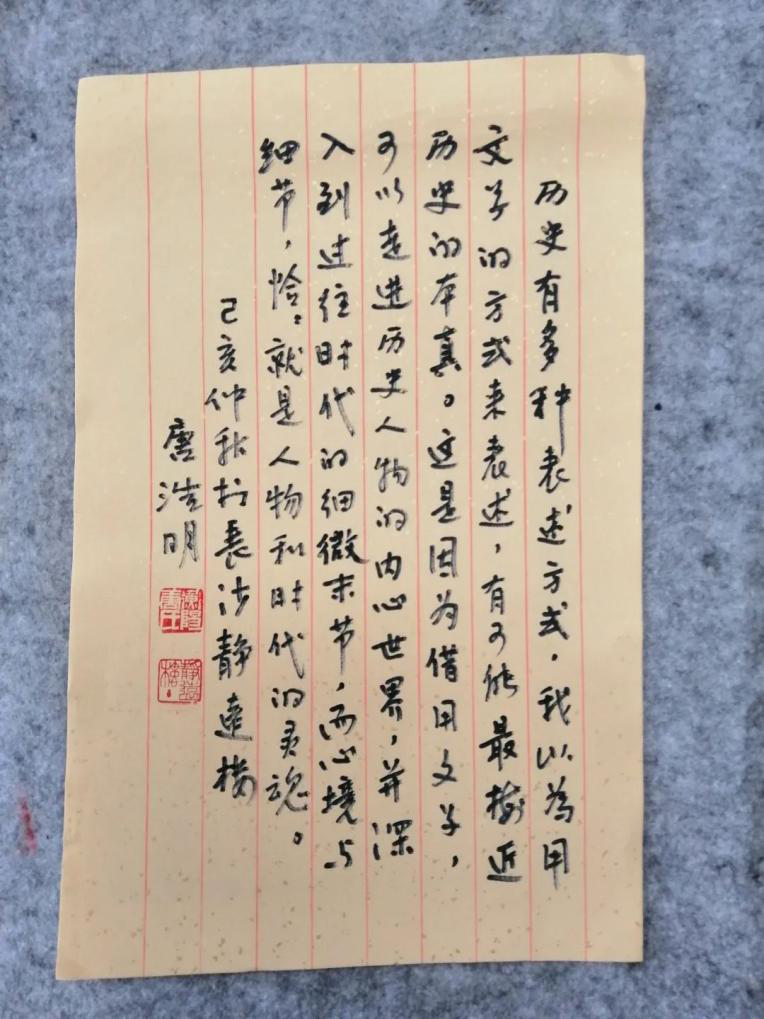 历史有多种表述方式，我以为用
文学的方式来表述，有可能最接近
历史的本真。这是因为借用文学，
可以走进历史人物的内心世界，并深
入到过往时代的细微末节，而心境与
细节，恰恰就是人物和时代的灵魂。
己亥仲秋于长沙静远楼
唐浩明
衡阳唐氏
静远楼